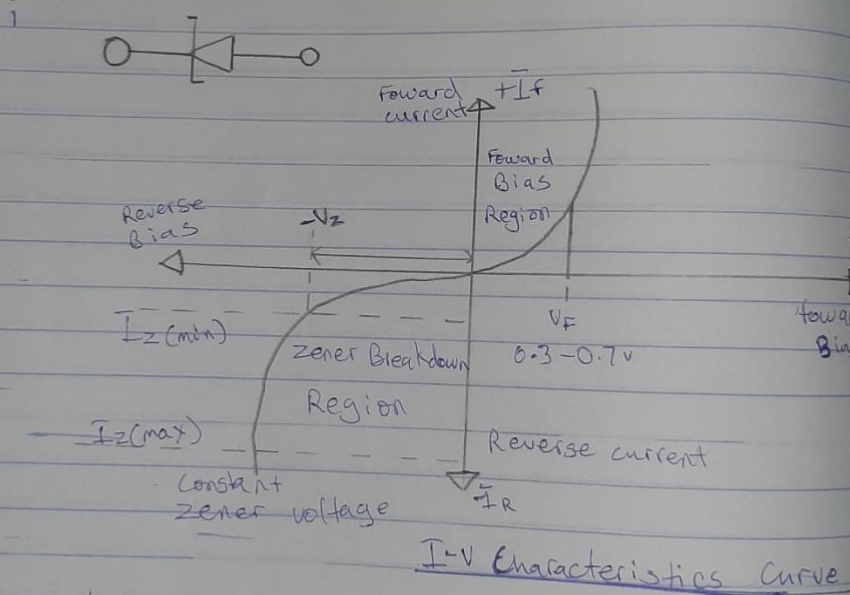 1
Foward
current
+If
Foward
Bias
Region
Reverse
Bias
-Vz
Iz(min)
VF
0.3-0.7v
Zener Breakdown
Region
Iz(max)
Reverse current
Constant
zener voltage
IR
I-V Characteristics Curve